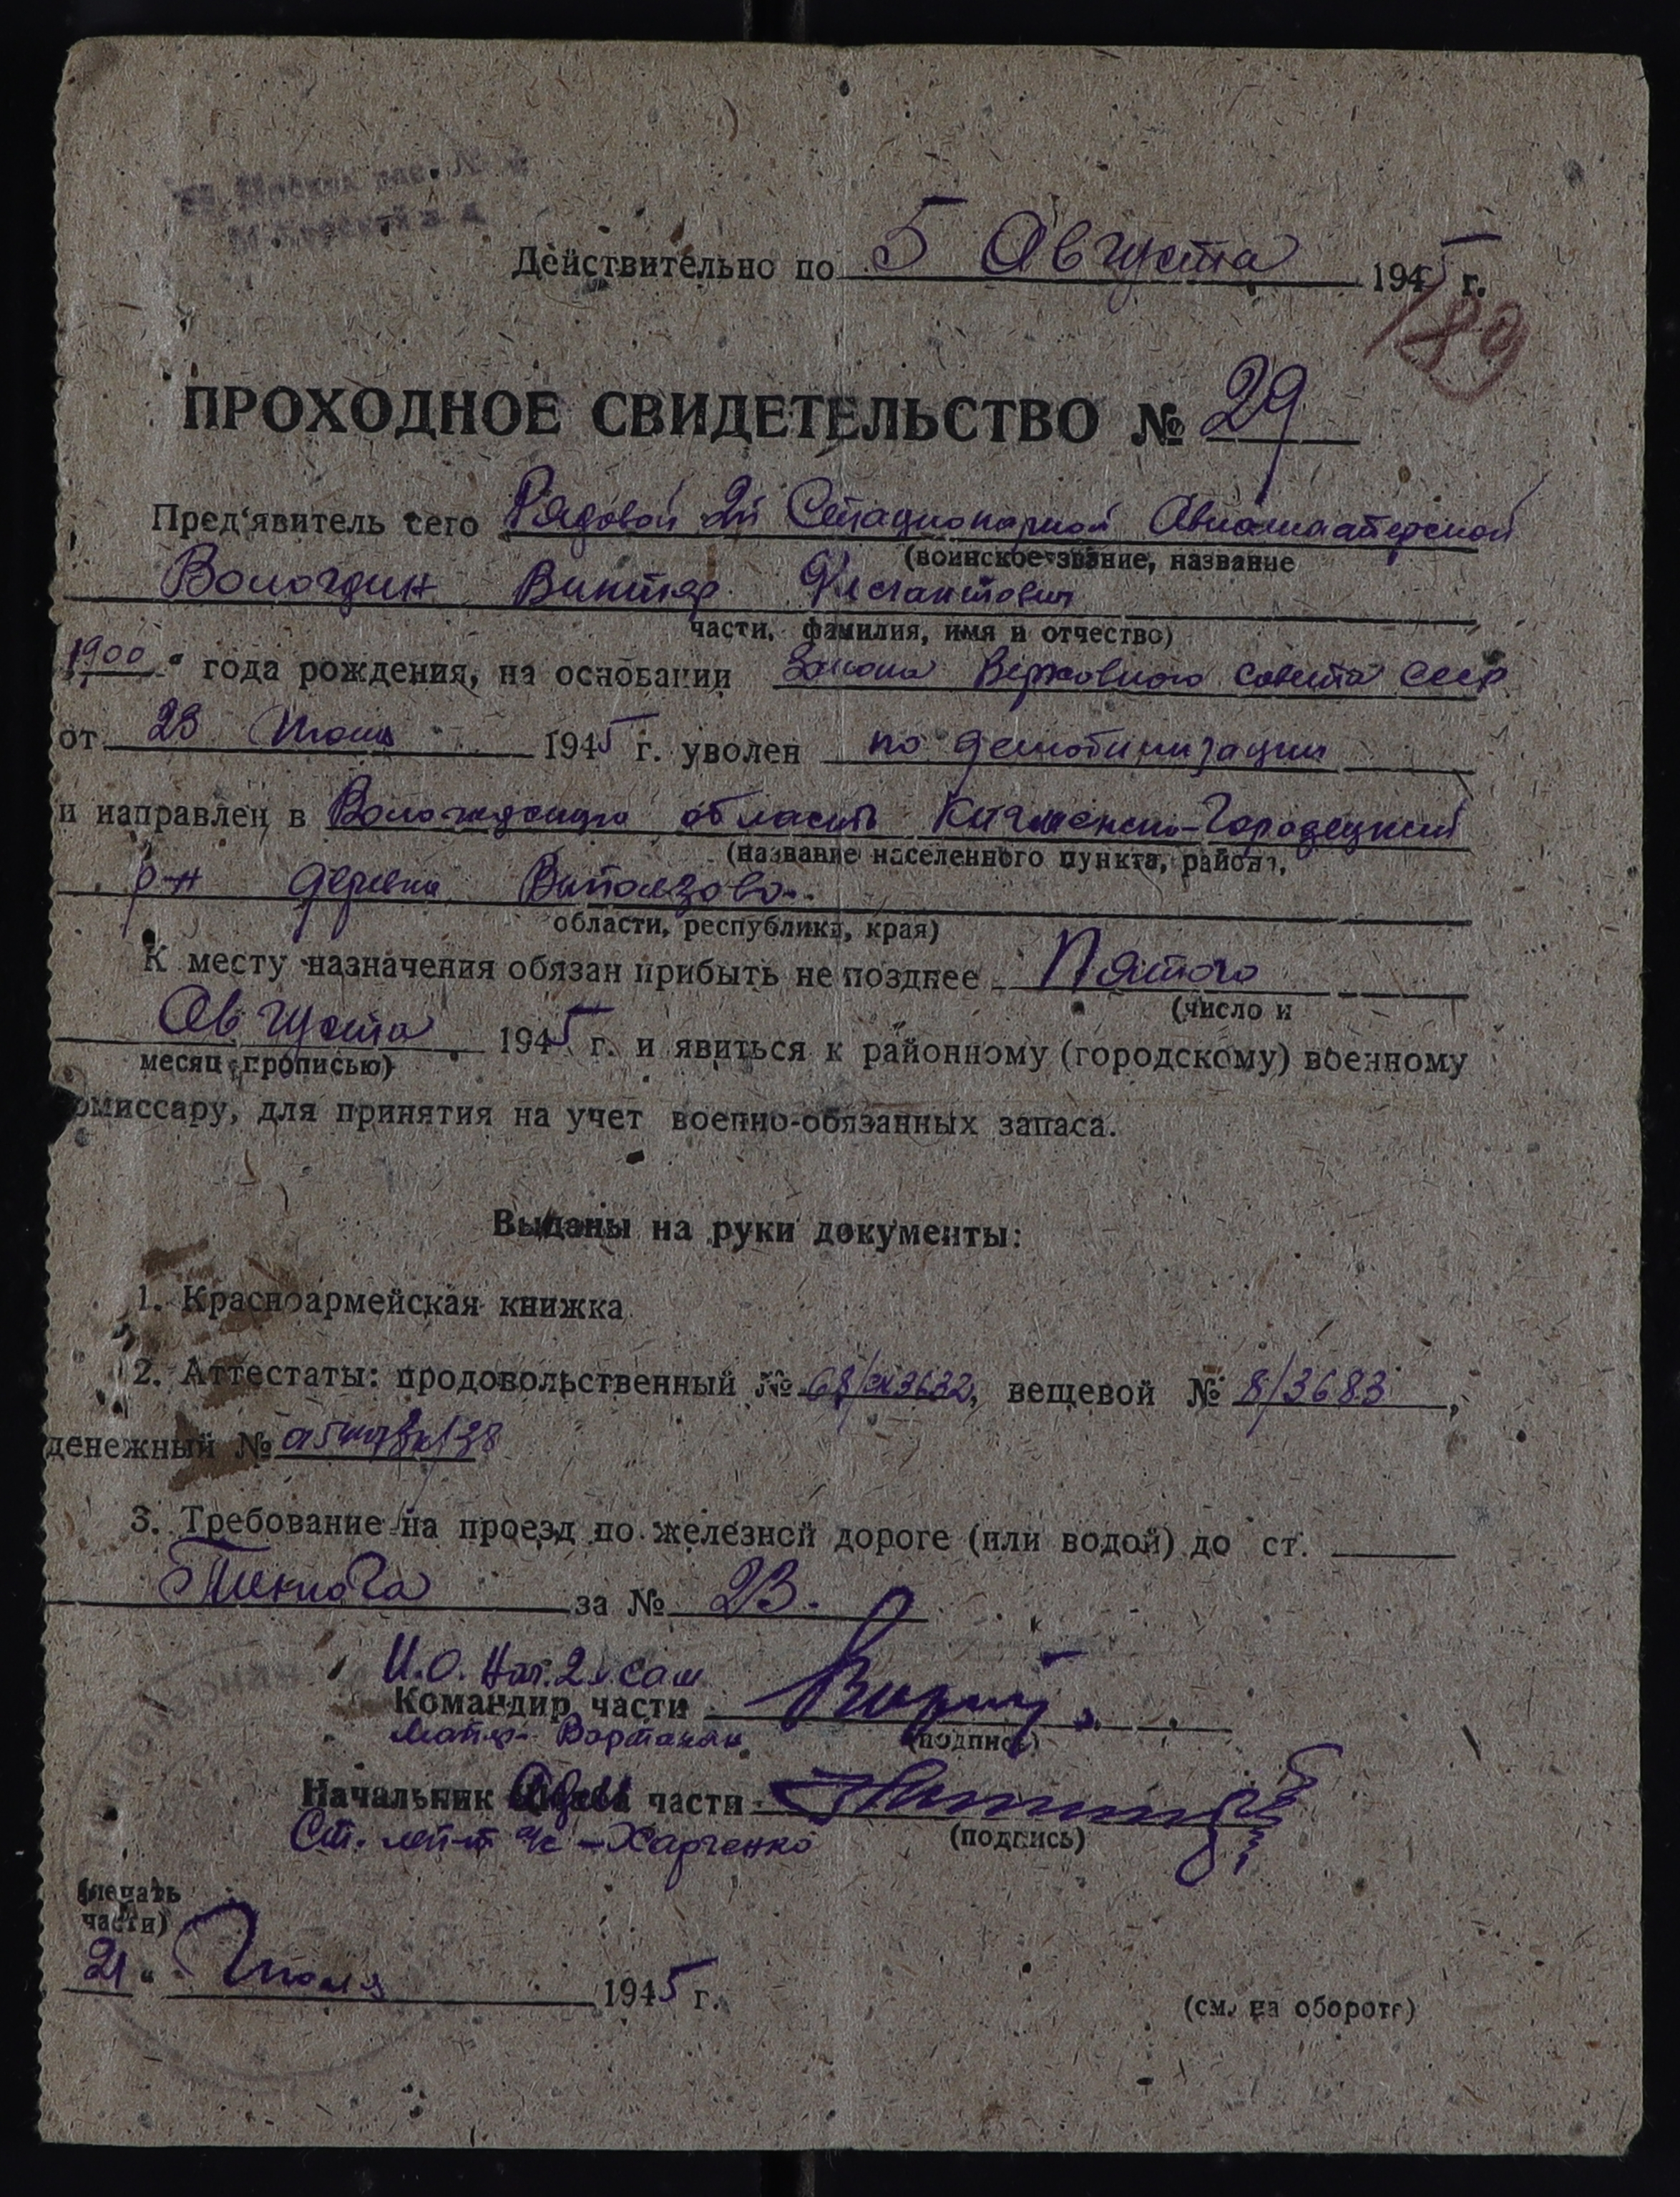 Действительно по 5 Августа 1945 г.
189
ПРОХОДНОЕ СВИДЕТЕЛЬСТВО № 29
Пред'явитель сего Рядовой 2й Стационарной Авиамастерской
(воинское звание, название
Вологдин Виктор
части, фамилия, имя и отчество)
1900 " года рождения, на основании Закона Верховного Совета СССР
от 23 Июня 1945 г. уволен по демобилизации
и направлен в Вологодскую область Кичменско-Городецкий
(название населенного пункта, района,
р-н деревня Выползово.
области, республики, края)
К месту назначения обязан прибыть не позднее Пятого
(число и
Августа 1945 г. и явиться к районному (городскому) военному
месяц прописью)
омиссару, для принятия на учет военно-обязанных запаса.
Выданы на руки документы:
1. Красноармейская книжка
2. Аттестаты: продовольственный № вещевой № 8/3683,
денежный №
3. Требование на проезд по железной дороге (или водой) до ст.
за № 23.
И.О. Нач. 2й САМ
Командир части
Майор Вартанян (подпись)
Начальник части
Ст. лей-т а/с - Харченко (подпись)
(печать
части)
21 " Июля 1945 г.
(см. на обороте)